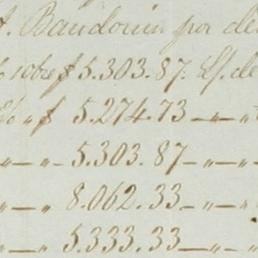 Baudouin por de
sobre $ 5.303.87. Lf. de
% „ $ 5.274.73 — „ —
— „ — 5.303.87 — „ — „
— „ — 8.062.33 — „ — „
— „ — 5.333.33 — „ — „